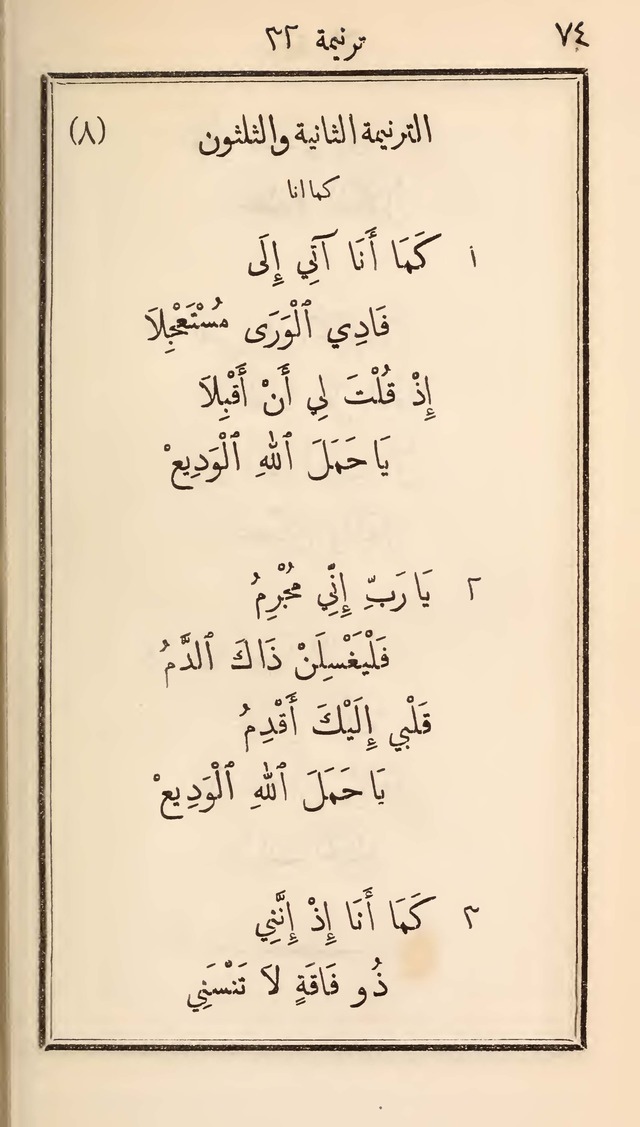 ٧٤ ترنيمة ٣٢
الترنيمة الثانية والثلثون (٨)
كما انا
١ كَمَا أَنَا آتِي إِلَى
فَادِي ٱلْوَرَى مُسْتَعْجِلاَ
إِذْ قُلْتَ لِي أَنْ أَقْبِلاَ
يَا حَمَلَ ٱللهِ ٱلْوَدِيعْ
٢ يَا رَبِّ إِنِّي مُجْرِمُ
فَلْيَغْسِلَنْ ذَاكَ ٱلدَّمُ
قَلْبِي إِلَيْكَ أَقْدِمُ
يَا حَمَلَ ٱللهِ ٱلْوَدِيعْ
٣ كَمَا أَنَا إِذْ إِنَّنِي
ذُو فَاقَةٍ لاَ تَنْسَنِي